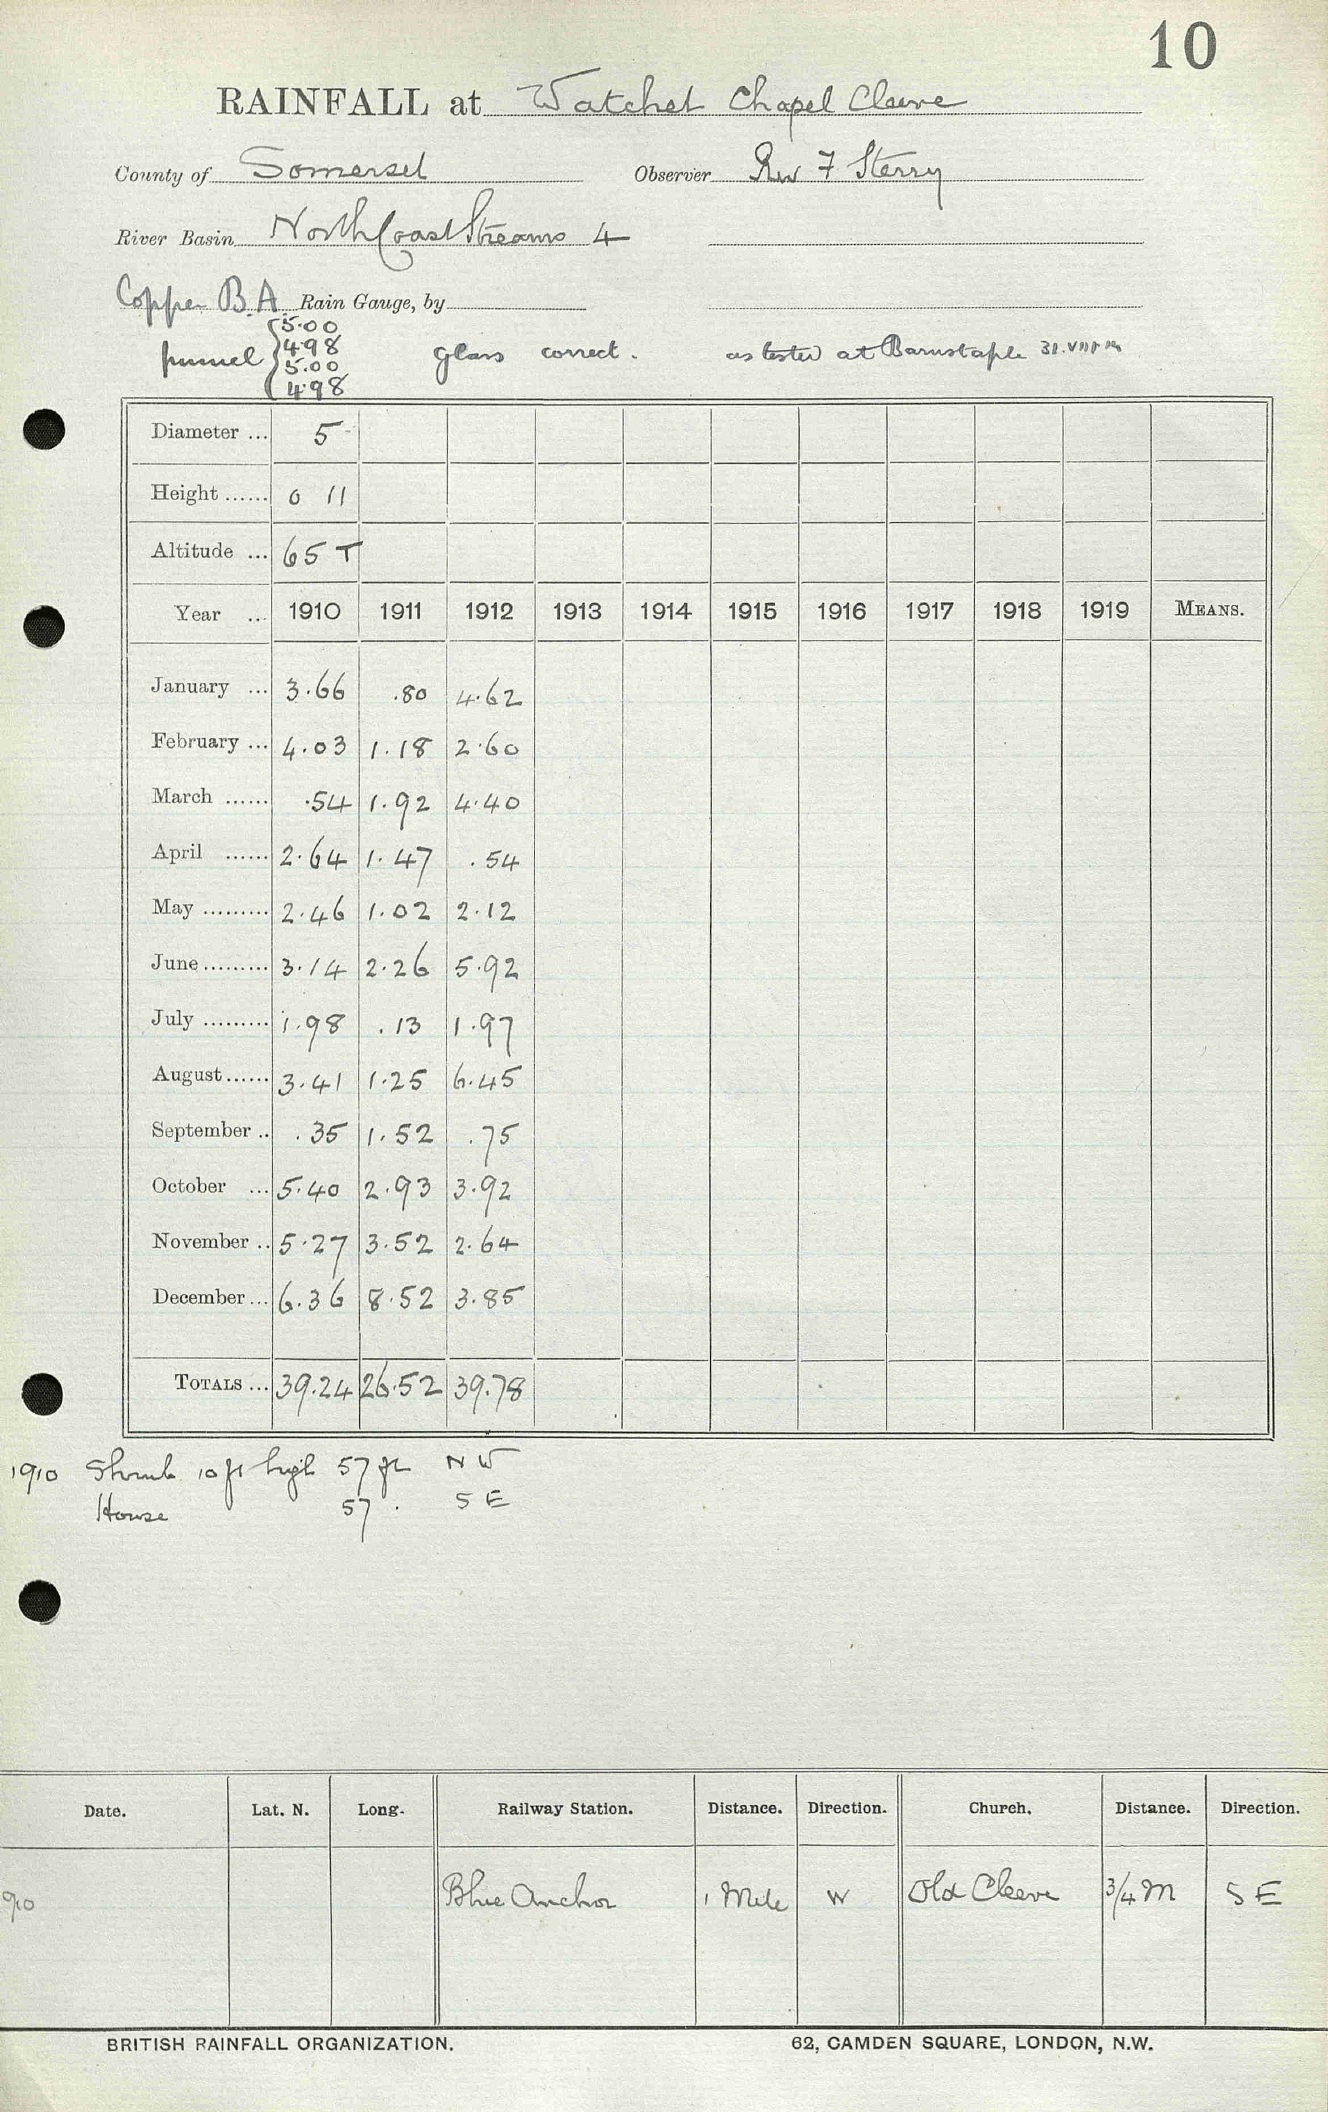 10
RAINFALL at Watchet Chapel Cleeve
County of Somerset Observer Rev F Sterry
River Basin North Coast Streams 4
Copper B.A. Rain Gauge, by
funnel { 5.00 4.98 5.00 4.98 glass correct. as tested at Barnstaple
Diameter ... 5
Height ...... 0 11
Altitude ... 65 T
Year ... 1910 1911 1912 1913 1914 1915 1916 1917 1918 1919 MEANS.
January ... 3.66 .80 4.62
February ... 4.03 1.18 2.60
March ...... .54 1.92 4.40
April ...... 2.64 1.47 .54
May ......... 2.46 1.02 2.12
June ......... 3.14 2.26 5.92
July ......... 1.98 .13 1.97
August ...... 3.41 1.25 6.45
September .. .35 1.52 .75
October ... 5.40 2.93 3.92
November .. 5.27 3.52 2.64
December ... 6.36 8.52 3.85
TOTALS ... 39.24 26.52 39.78
1910 Shrub 10 ft high 57 ft NW
House 57 . SE
Date. Lat. N. Long. Railway Station. Distance. Direction. Church. Distance. Direction.
910 Blue Anchor 1 Mile W Old Cleeve 3/4 M SE
BRITISH RAINFALL ORGANIZATION. 62, CAMDEN SQUARE, LONDON, N.W.